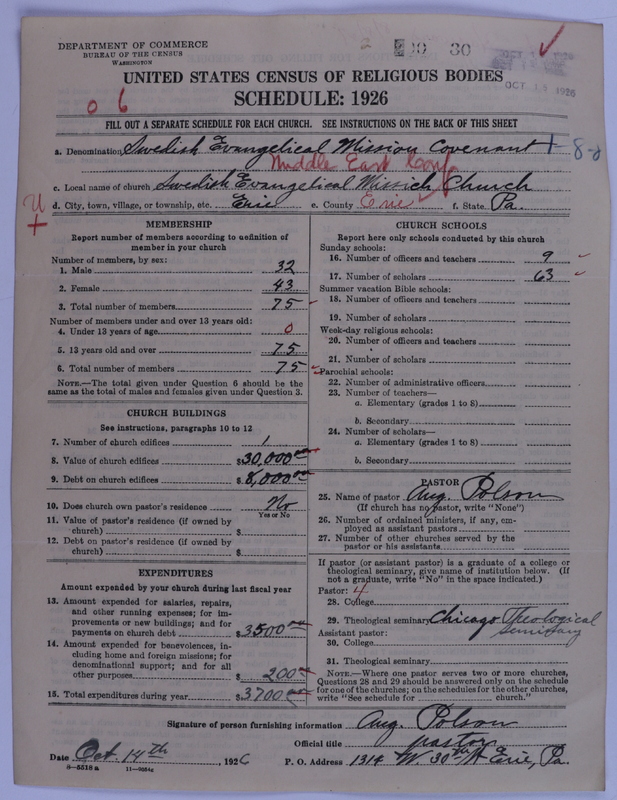 DEPARTMENT OF COMMERCE
BUREAU OF THE CENSUS
WASHINGTON
30
OCT 15 1926
UNITED STATES CENSUS OF RELIGIOUS BODIES
SCHEDULE: 1926
0 6
FILL OUT A SEPARATE SCHEDULE FOR EACH CHURCH. SEE INSTRUCTIONS ON THE BACK OF THIS SHEET
a. Denomination Swedish Evangelical Mission Covenant
Middle East Conf
c. Local name of church Swedish Evangelical Mission Church
d. City, town, village, or township, etc. Erie e. County Erie f. State Pa.
MEMBERSHIP
Report number of members according to definition of
member in your church
Number of members, by sex:
1. Male 32
2. Female 43
3. Total number of members 75
Number of members under and over 13 years old:
4. Under 13 years of age 0
5. 13 years old and over 75
6. Total number of members 75
NOTE.—The total given under Question 6 should be
same as the total of males and females given under Question 3.
CHURCH BUILDINGS
See instructions, paragraphs 10 to 12
7. Number of church edifices 1
8. Value of church edifices $30,000 00
9. Debt on church edifices $8,000 00
10. Does church own pastor's residence No
Yes or No
11. Value of pastor's residence (if owned by
church) $
12. Debt on pastor's residence (if owned by
church) $
EXPENDITURES
Amount expended by your church during last fiscal year
13. Amount expended for salaries, repairs,
and other running expenses; for im-
provements or new buildings; and for
payments on church debt $3500 00
14. Amount expended for benevolences, in-
cluding home and foreign missions; for
denominational support; and for all
other purposes $200 00
15. Total expenditures during year $3700 00
CHURCH SCHOOLS
Report here only schools conducted by this church
Sunday schools:
16. Number of officers and teachers 9
17. Number of scholars 63
Summer vacation Bible schools:
18. Number of officers and teachers
19. Number of scholars
Week-day religious schools:
20. Number of officers and teachers
21. Number of scholars
Parochial schools:
22. Number of administrative officers
23. Number of teachers—
a. Elementary (grades 1 to 8)
b. Secondary
24. Number of scholars—
a. Elementary (grades 1 to 8)
b. Secondary
PASTOR
25. Name of pastor Aug. Polson
(If church has no pastor, write "None")
26. Number of ordained ministers, if any, em-
ployed as assistant pastors
27. Number of other churches served by the
pastor or his assistants
If pastor (or assistant pastor) is a graduate of a college or
theological seminary, give name of institution below. (If
not a graduate, write "No" in the space indicated.)
Pastor: 4
28. College
29. Theological seminary Chicago Theological Seminary
Assistant pastor:
30. College
31. Theological seminary
NOTE.—Where one pastor serves two or more churches,
Questions 28 and 29 should be answered only on the schedule
for one of the churches; on the schedules for the other churches,
write "See schedule for church."
Signature of person furnishing information Aug. Polson
Official title pastor
Date Oct. 14th, 1926 P. O. Address 1314 W. 30th St Erie, Pa.